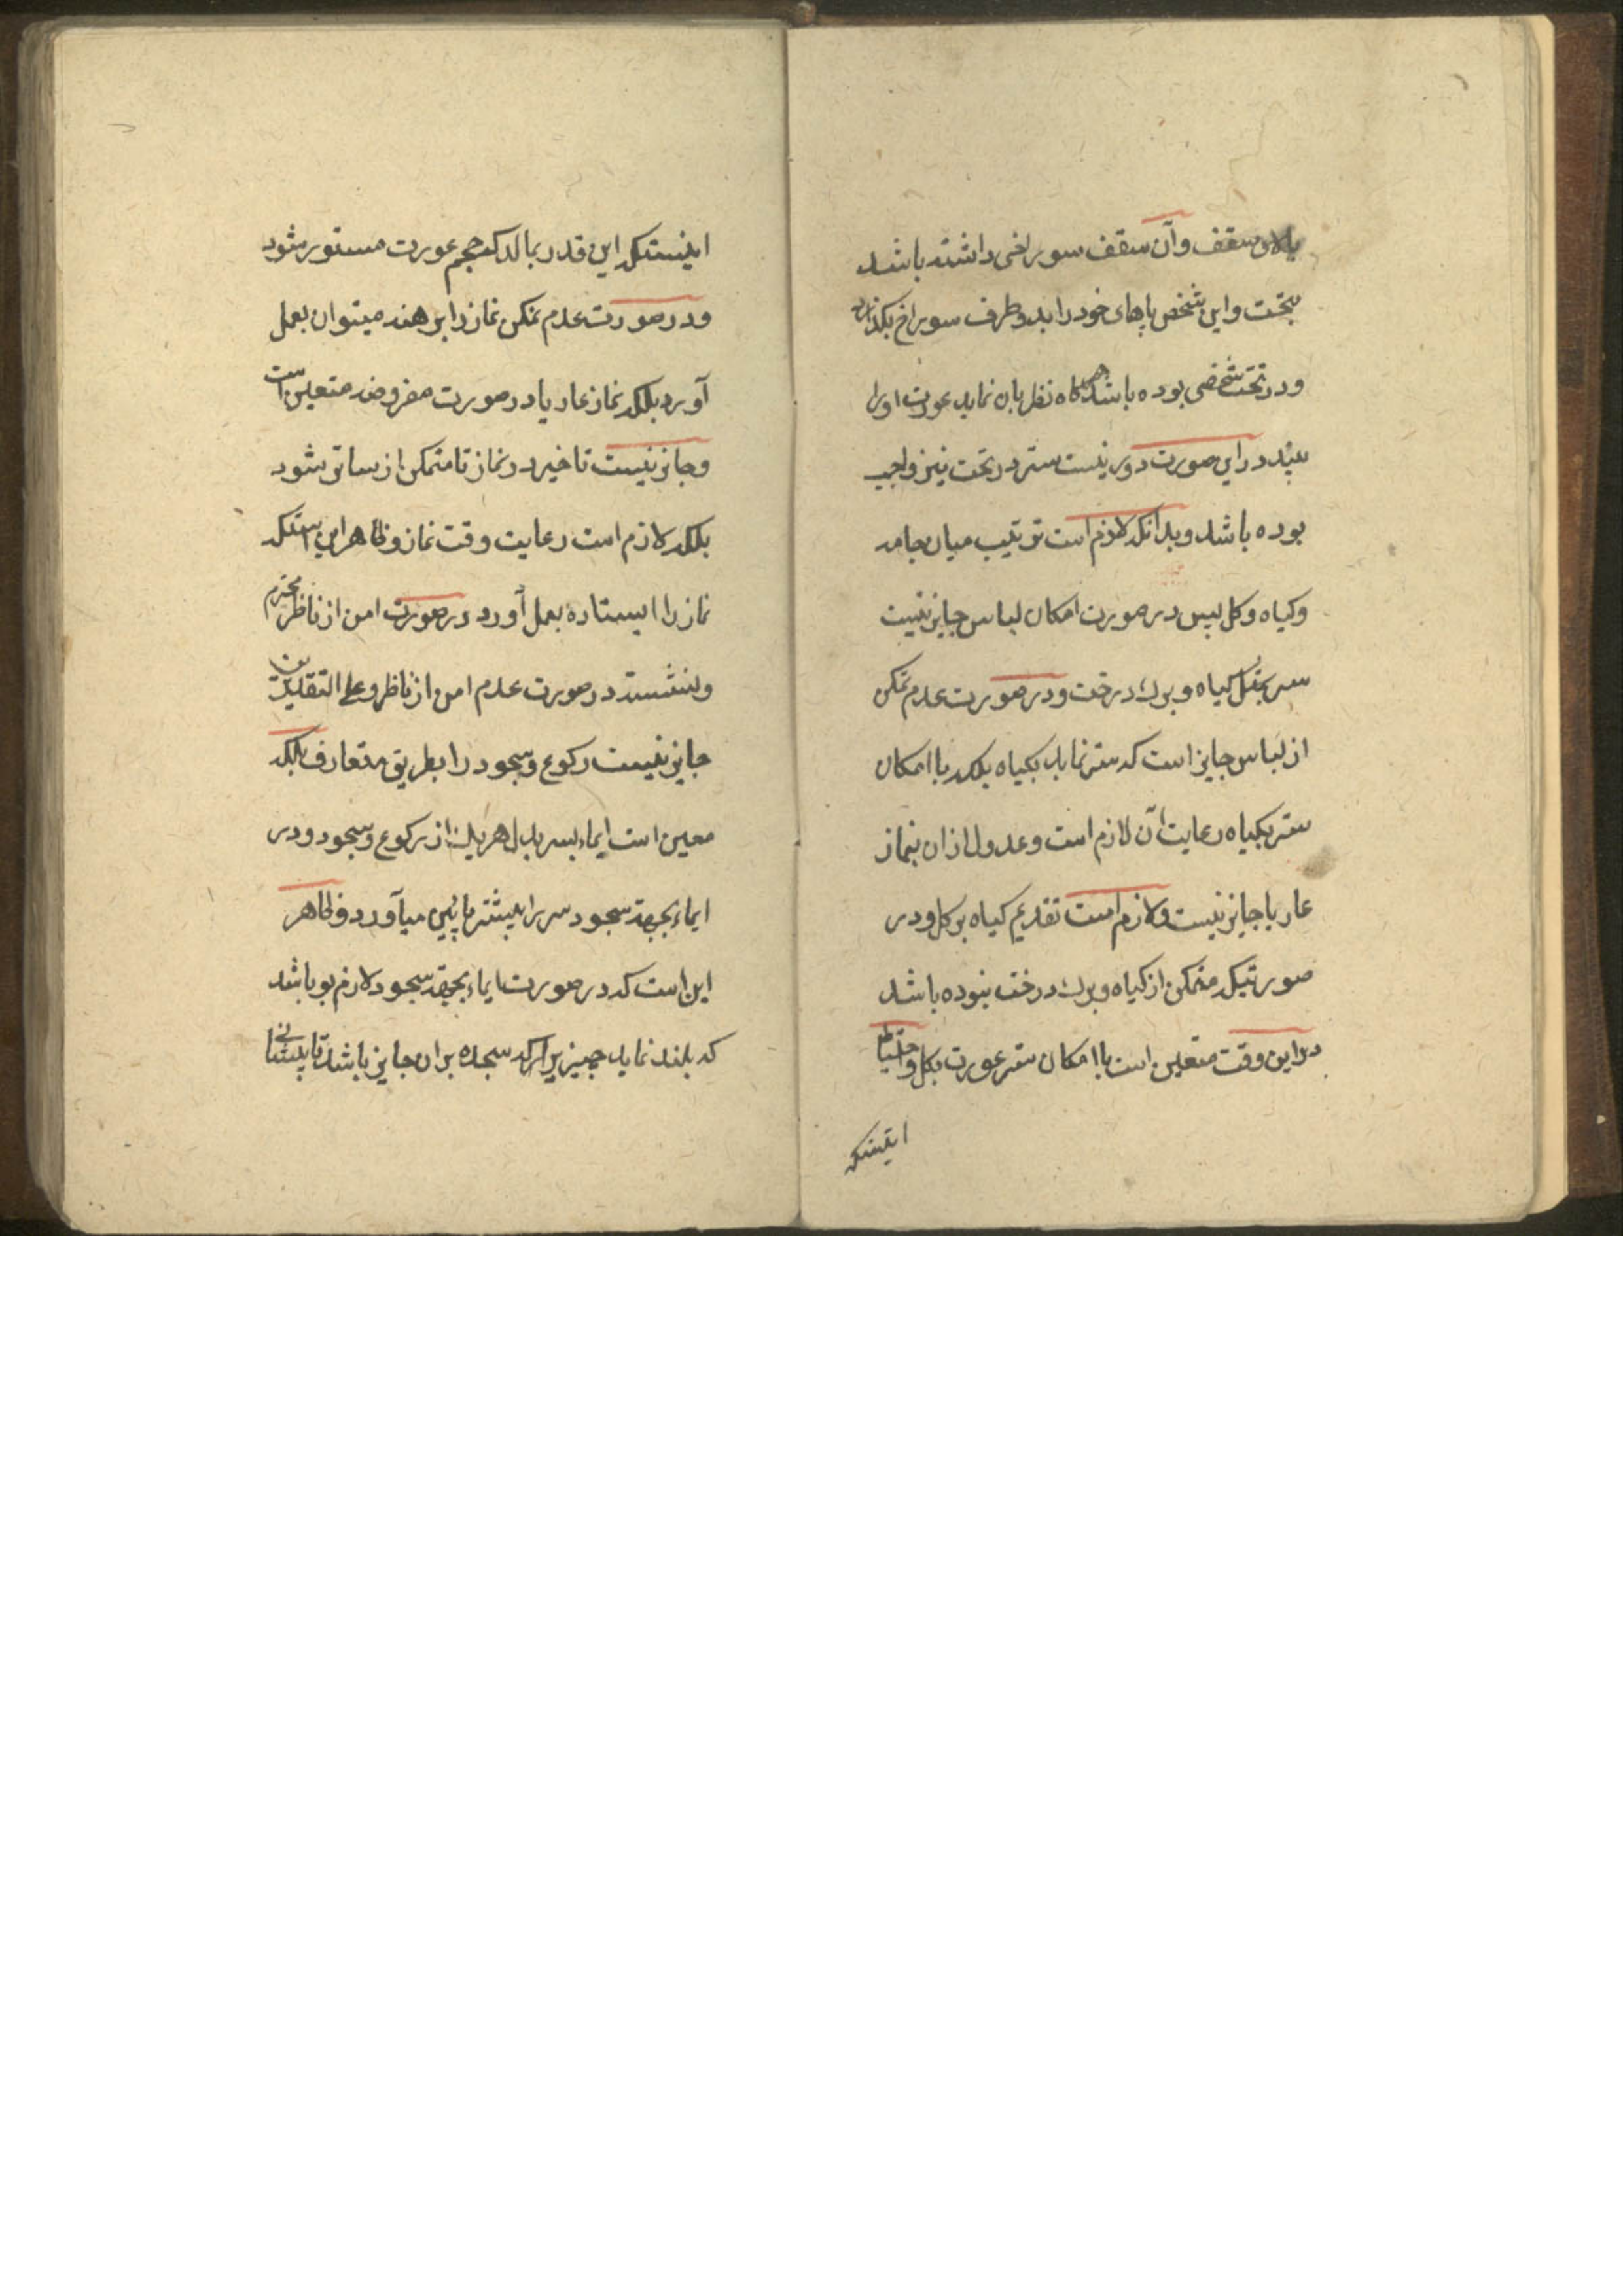 بالای سقف وآن سقف سوراخی داشته باشد
بتحت واین شخص پاهای خود را بدو طرف سوراخ بگذارد
ودر تحت شخصی بوده باشد که هرگاه نظر بان نماید عورت اورا
بیند در این صورت دور نیست ستر در تحت نیز واجب
بوده باشد وبدانکه لازم است ترتیب میان جامه
وکیاه وکل پس در صورت امکان لباس جایز نیست
ستر بمثل کیاه وبرك درخت ودر صورت عدم تمکن
از لباس جایز است که ستر نماید بکیاه بلکه با امکان
ستر بکیاه رعایت آن لازم است وعدول از ان بنماز
عاریا جایز نیست ولازم است تقدیم کیاه بر کل ودر
صورتیکه متمکن از کیاه وبرك درخت نبوده باشد
در این وقت متعین است با امکان ستر عورت بکل واحتیاط
اینستکه
اینستکه این قدر بمالد که حجم عورت مستور شود
ودر صورت عدم تمکن نماز را برهنه میتوان بعمل
آورد بلکه نماز عاریا در صورت مفروضه متعین است
وجایز نیست تاخیر در نماز تا متمکن از ساتر شود
بلکه لازم است رعایت وقت نماز وظاهر این استکه
نماز را ایستاده بعمل آورد در صورت امن از ناظر محترم
ونشسته در صورت عدم امن از ناظر وعلی التقدیرین
جایز نیست رکوع وسجود را بطریق متعارف بلکه
معین است ایماء بسر بدل هریك از رکوع وسجود ودر
ایماء بجهة سجود سر را بیشتر پائین میآورد وظاهر
این است که در صورت ایماء بجهة سجود لازم بوباشد
که بلند نماید چیزیرا که سجده بران جایز باشد تا پیشانی